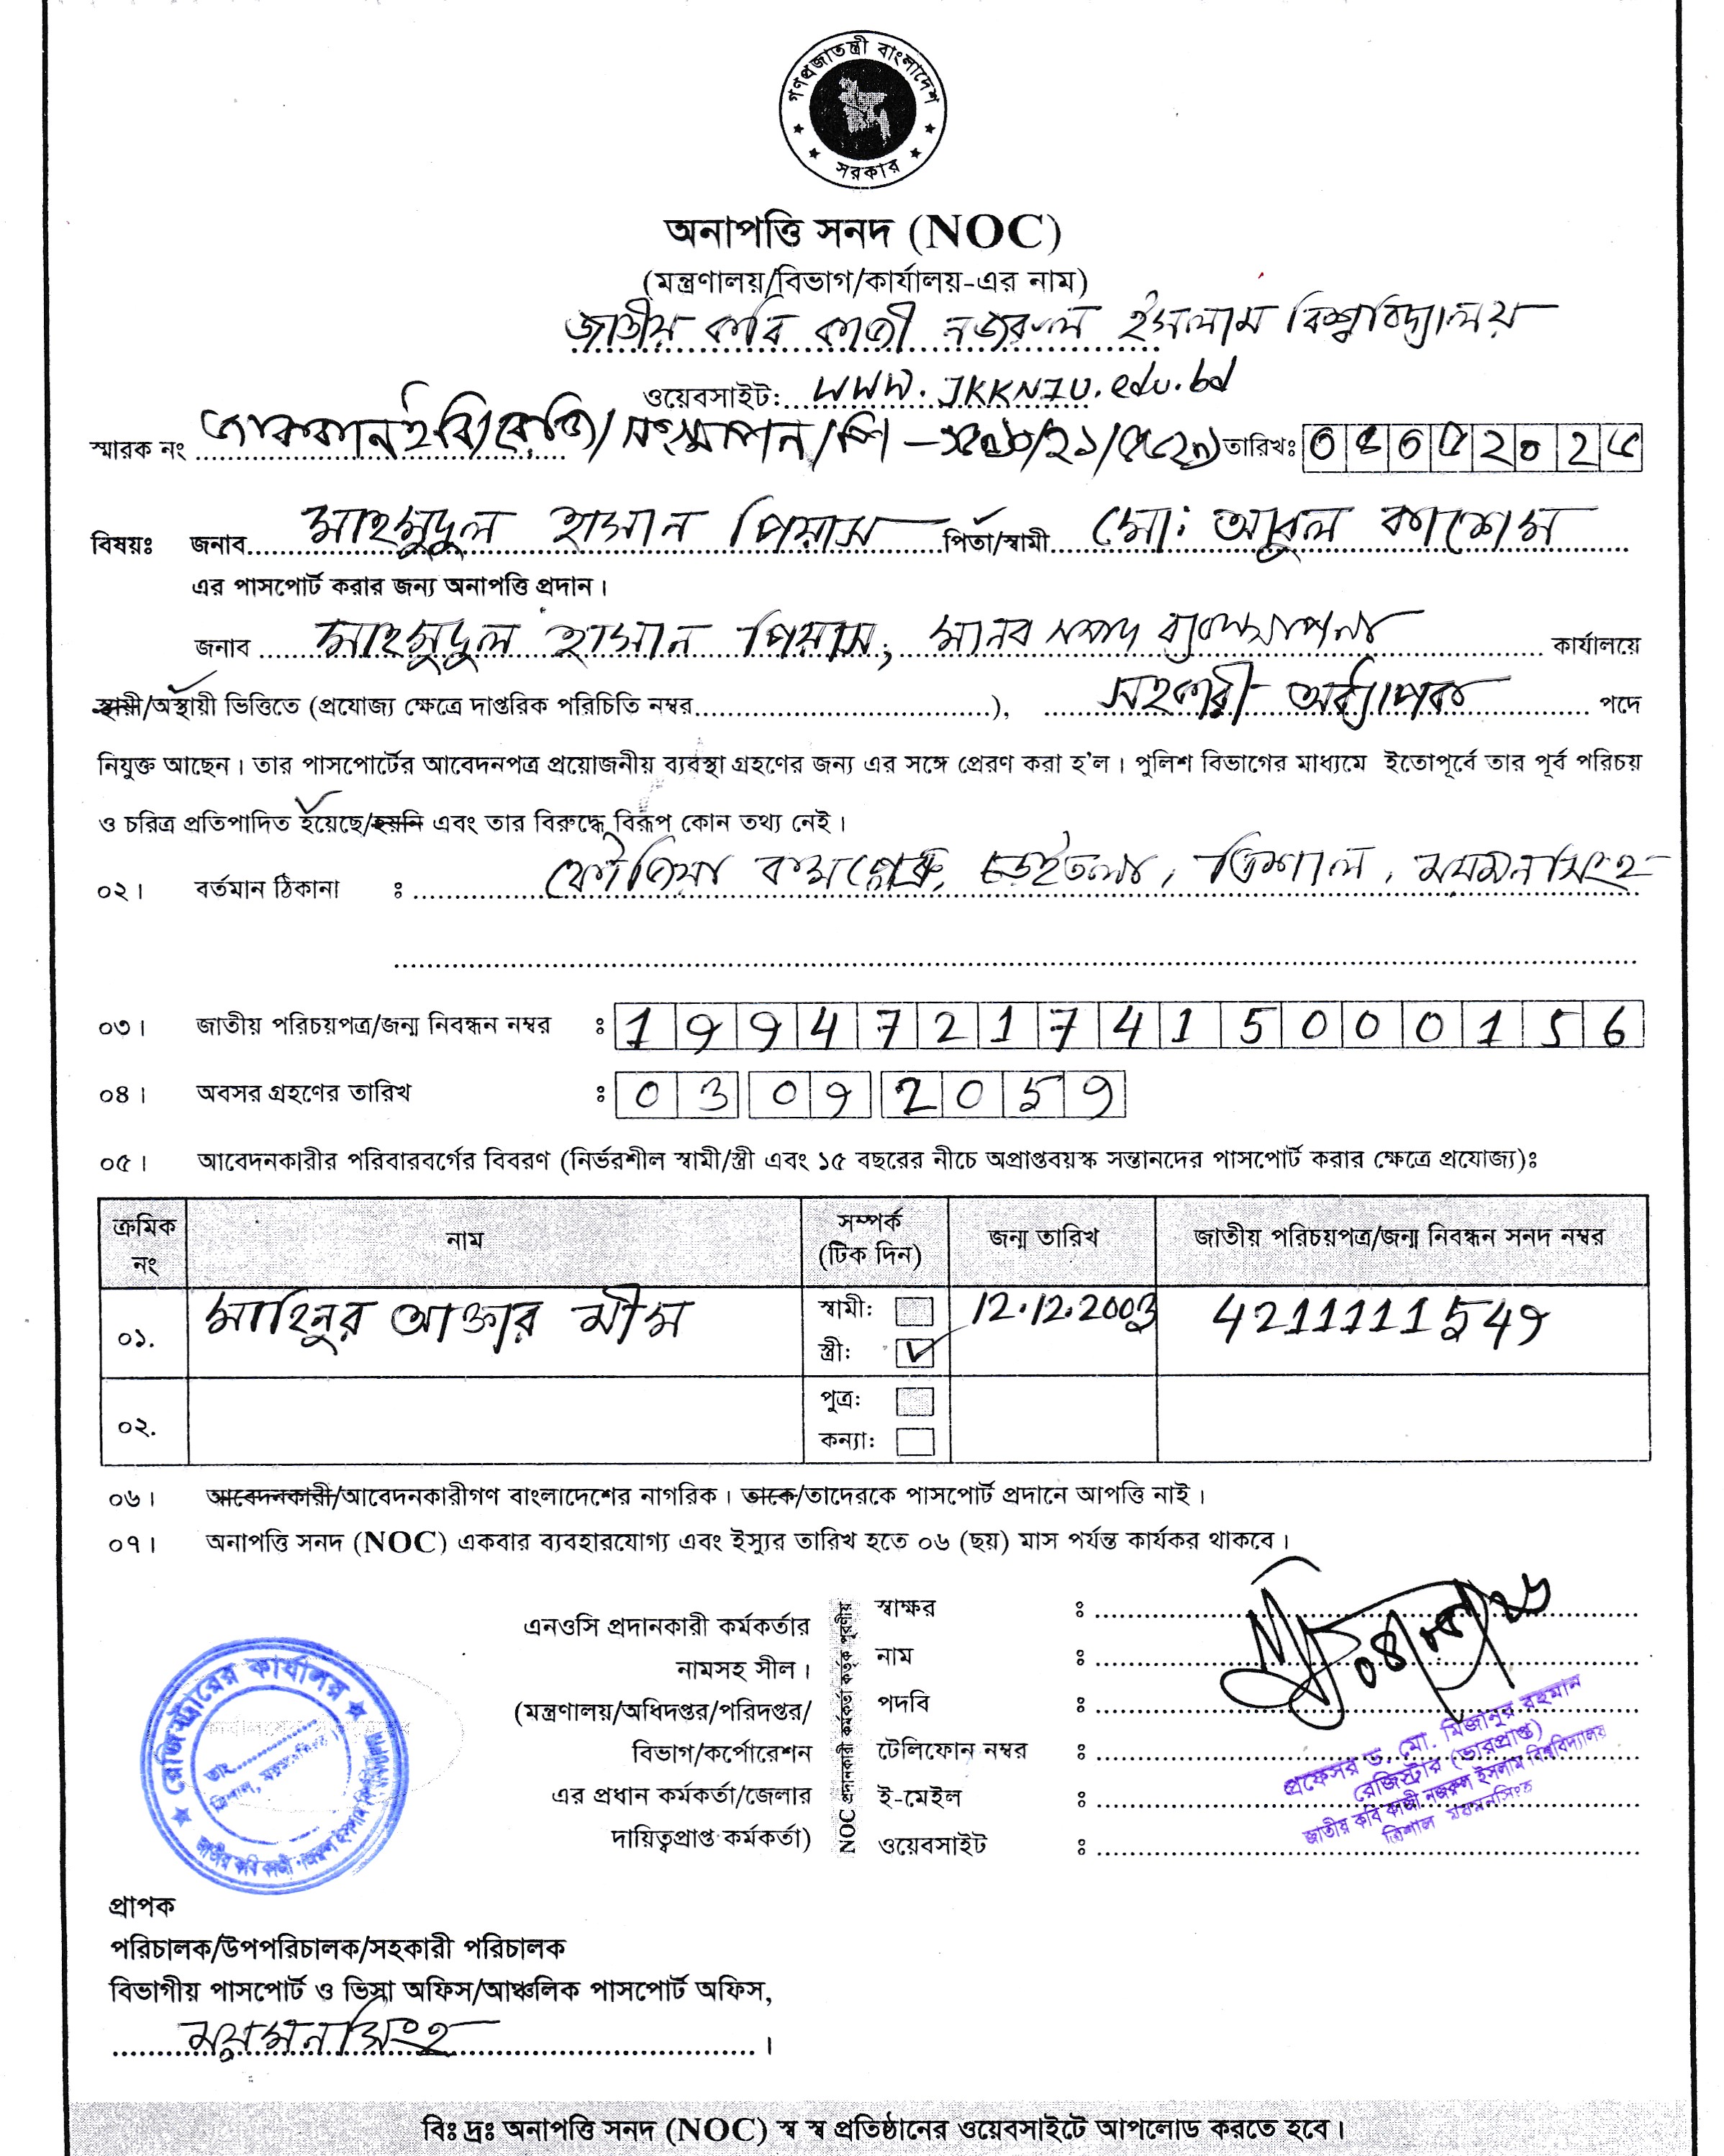 গণপ্রজাতন্ত্রী বাংলাদেশ
সরকার
অনাপত্তি সনদ (NOC)
(মন্ত্রণালয়/বিভাগ/কার্যালয়-এর নাম)
জাতীয় কবি কাজী নজরুল ইসলাম বিশ্ববিদ্যালয়
ওয়েবসাইট: www.JKKNIU.edu.bd
স্মারক নং জাককানইবি/রেজি/সংস্থাপন/শি- তারিখঃ 04052025
বিষয়ঃ জনাব মাহমুদুল হাসান পিয়াস পিতা/স্বামী মো: আবুল কাশেম
এর পাসপোর্ট করার জন্য অনাপত্তি প্রদান।
জনাব মাহমুদুল হাসান পিয়াস, মানব সম্পদ ব্যবস্থাপনা কার্যালয়ে
স্থায়ী/অস্থায়ী ভিত্তিতে (প্রযোজ্য ক্ষেত্রে দাপ্তরিক পরিচিতি নম্বর..............................), সহকারী অধ্যাপক পদে
নিযুক্ত আছেন। তার পাসপোর্টের আবেদনপত্র প্রয়োজনীয় ব্যবস্থা গ্রহণের জন্য এর সঙ্গে প্রেরণ করা হ'ল। পুলিশ বিভাগের মাধ্যমে ইতোপূর্বে তার পূর্ব পরিচয়
ও চরিত্র প্রতিপাদিত হয়েছে/হয়নি এবং তার বিরুদ্ধে বিরূপ কোন তথ্য নেই।
০২। বর্তমান ঠিকানা ঃ চড়ইতলা, ত্রিশাল, ময়মনসিংহ
০৩। জাতীয় পরিচয়পত্র/জন্ম নিবন্ধন নম্বর ঃ 19947217415000156
০৪। অবসর গ্রহণের তারিখ ঃ 03 09 2059
০৫। আবেদনকারীর পরিবারবর্গের বিবরণ (নির্ভরশীল স্বামী/স্ত্রী এবং ১৫ বছরের নীচে অপ্রাপ্তবয়স্ক সন্তানদের পাসপোর্ট করার ক্ষেত্রে প্রযোজ্য)ঃ
ক্রমিক নং নাম সম্পর্ক (টিক দিন) জন্ম তারিখ জাতীয় পরিচয়পত্র/জন্ম নিবন্ধন সনদ নম্বর
০১. মাহিনুর আক্তার মীম স্বামী: 12.12.2003 4211111549
স্ত্রী: ✓
০২. পুত্র:
কন্যা:
০৬। আবেদনকারী/আবেদনকারীগণ বাংলাদেশের নাগরিক। তাকে/তাদেরকে পাসপোর্ট প্রদানে আপত্তি নাই।
০৭। অনাপত্তি সনদ (NOC) একবার ব্যবহারযোগ্য এবং ইস্যুর তারিখ হতে ০৬ (ছয়) মাস পর্যন্ত কার্যকর থাকবে।
এনওসি প্রদানকারী কর্মকর্তার
নামসহ সীল।
(মন্ত্রণালয়/অধিদপ্তর/পরিদপ্তর/
বিভাগ/কর্পোরেশন
এর প্রধান কর্মকর্তা/জেলার
দায়িত্বপ্রাপ্ত কর্মকর্তা)
NOC প্রদানকারী কর্মকর্তা কর্তৃক পূরণীয়
স্বাক্ষর ঃ
নাম ঃ
পদবি ঃ
টেলিফোন নম্বর ঃ
ই-মেইল ঃ
ওয়েবসাইট ঃ
প্রফেসর ড. মো. মিজানুর রহমান
রেজিস্ট্রার (ভারপ্রাপ্ত)
জাতীয় কবি কাজী নজরুল ইসলাম বিশ্ববিদ্যালয়
ত্রিশাল ময়মনসিংহ
রেজিস্ট্রারের কার্যালয়
তাং
ত্রিশাল, ময়মনসিংহ
জাতীয় কবি কাজী নজরুল ইসলাম
প্রাপক
পরিচালক/উপপরিচালক/সহকারী পরিচালক
বিভাগীয় পাসপোর্ট ও ভিসা অফিস/আঞ্চলিক পাসপোর্ট অফিস,
ময়মনসিংহ।
বিঃ দ্রঃ অনাপত্তি সনদ (NOC) স্ব স্ব প্রতিষ্ঠানের ওয়েবসাইটে আপলোড করতে হবে।